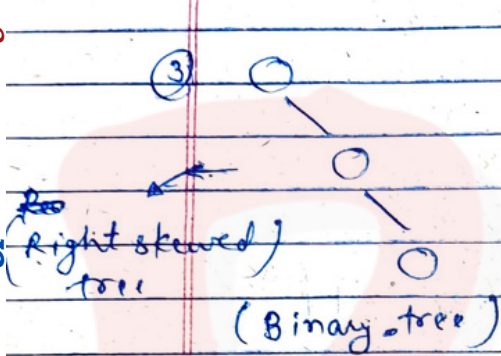 ③
(Right skewed)
tree
(Binary tree)